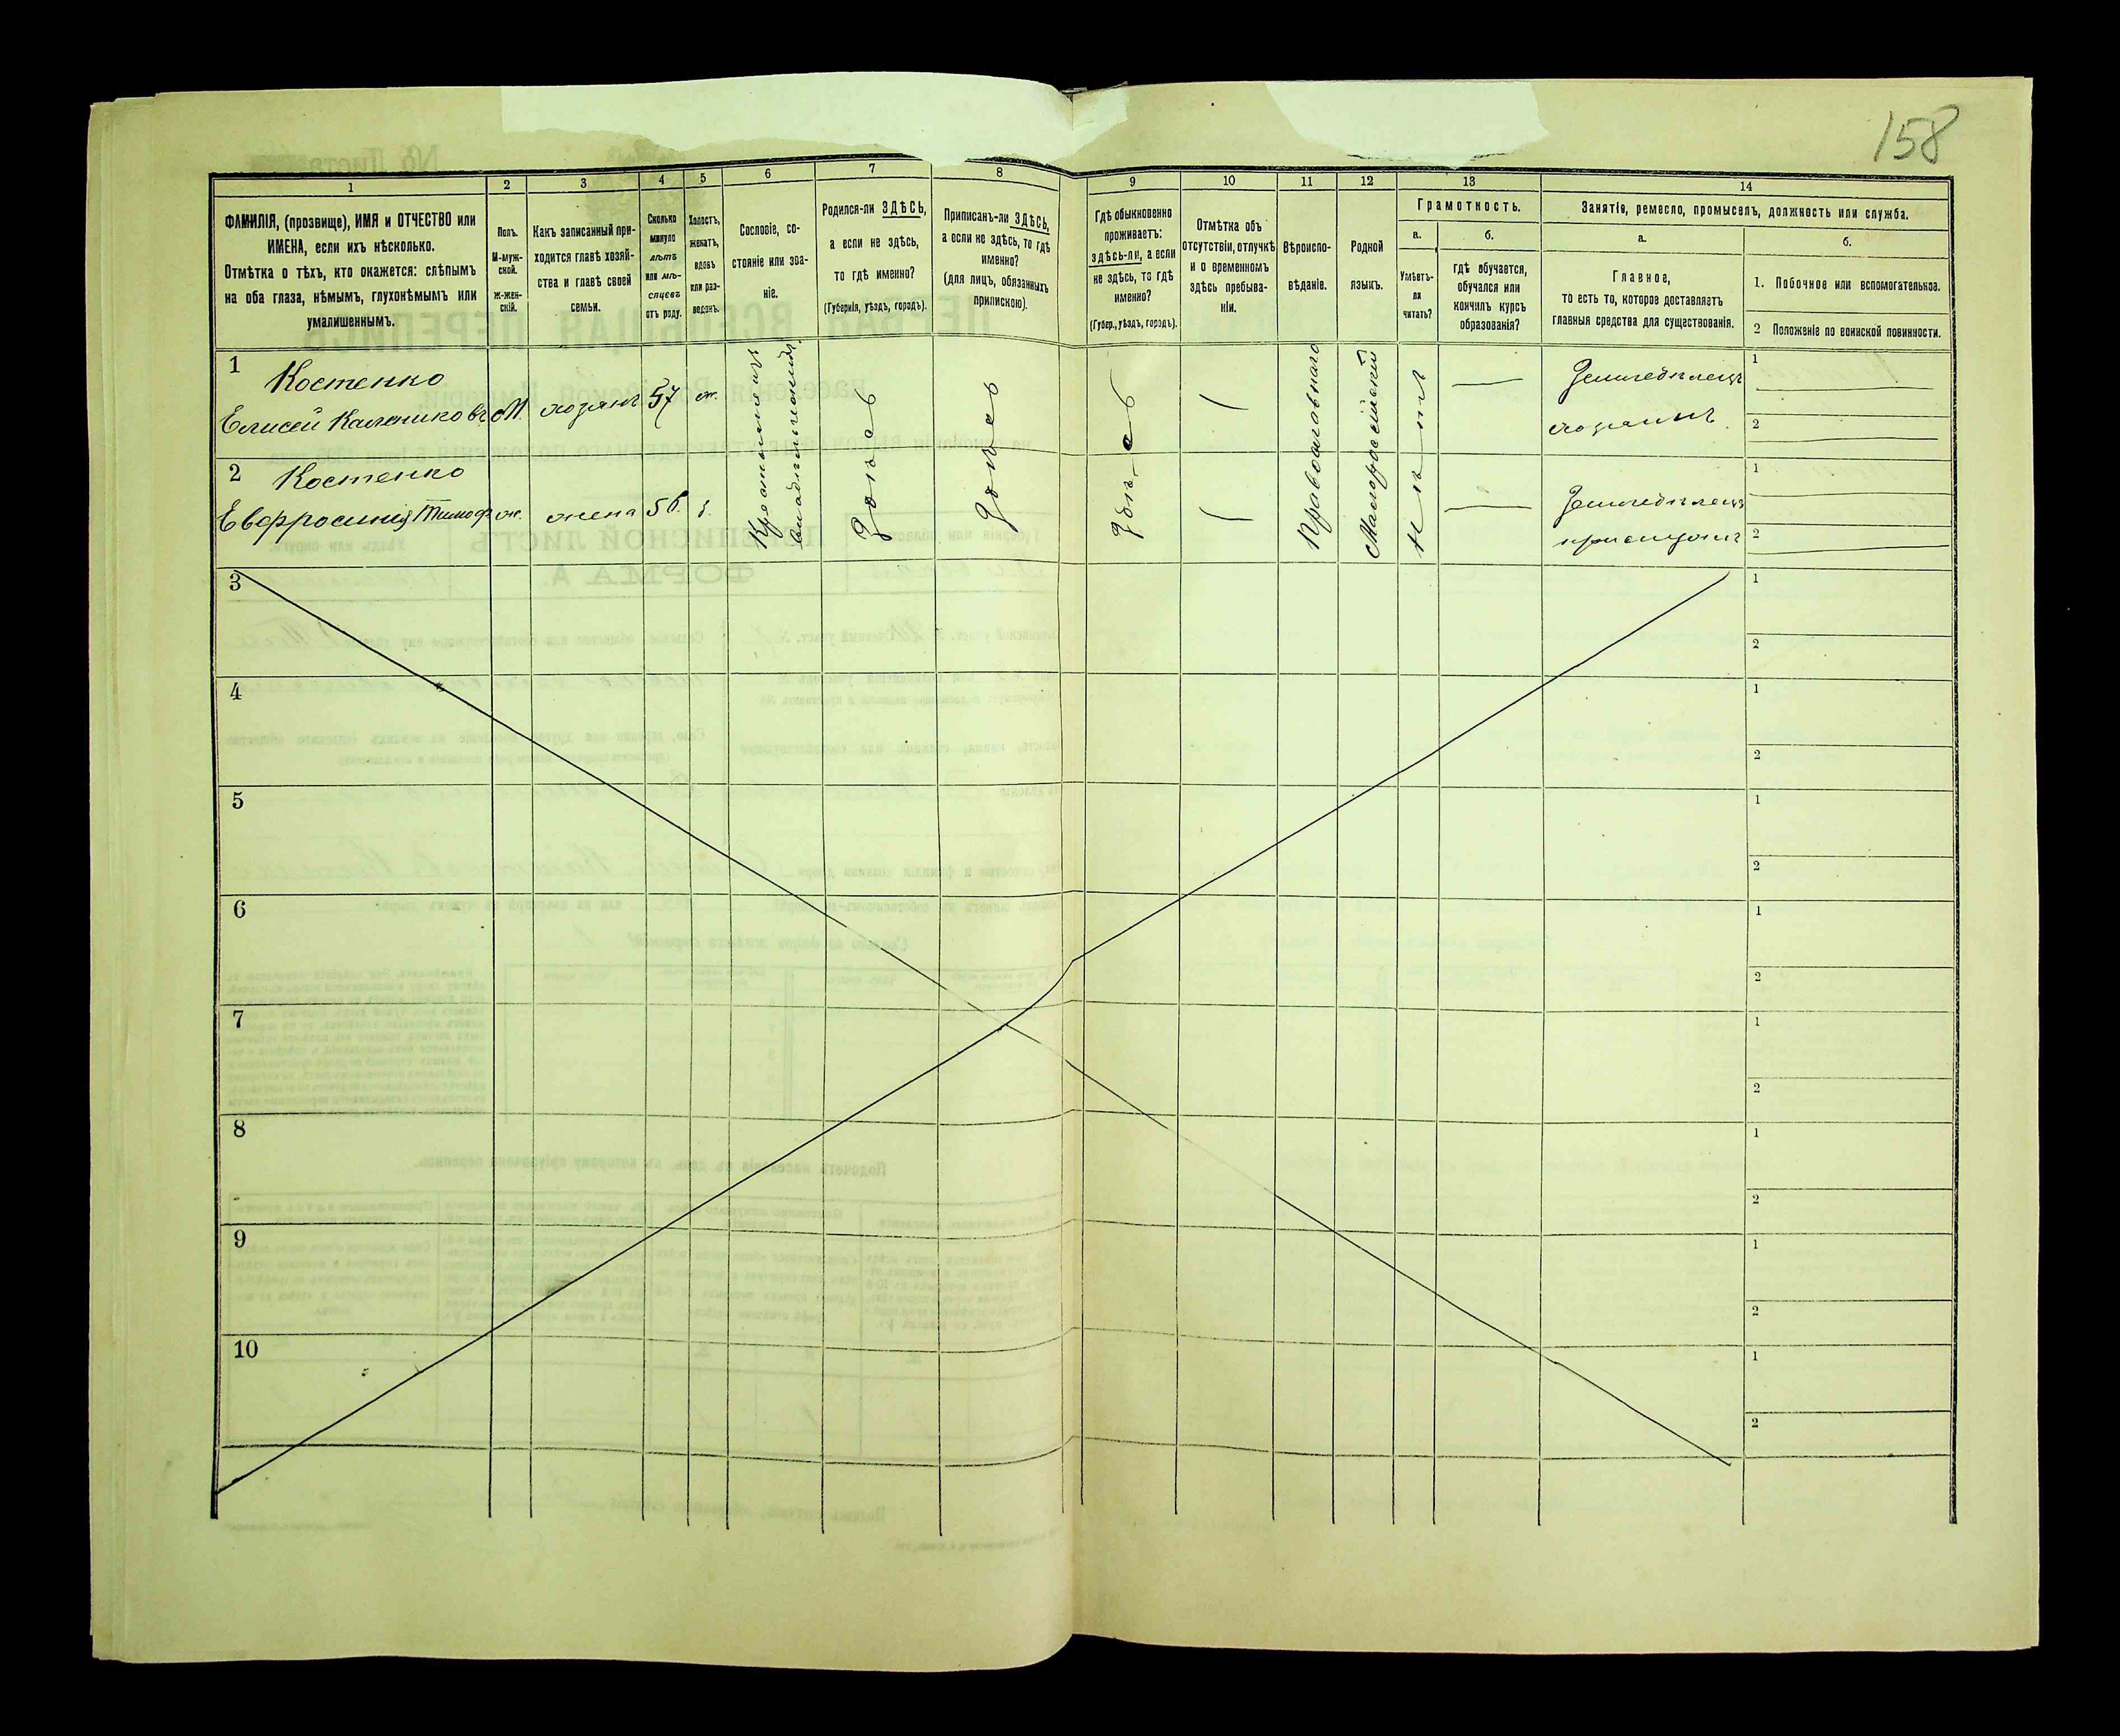 158
1
2
3
4
5
6
7
8
9
10
11
12
13
14
ФАМИЛІЯ, (прозвище), ИМЯ и ОТЧЕСТВО или
ИМЕНА, если ихъ нѣсколько.
Отмѣтка о тѣхъ, кто окажется: слѣпымъ
на оба глаза, нѣмымъ, глухонѣмымъ или
умалишеннымъ.
Полъ.
М-муж-
ской.
ж-жен-
скій.
Какъ записанный при-
ходится главѣ хозяй-
ства и главѣ своей
семьи.
Сколько
минуло
лѣтъ
или мѣ-
сяцевъ
отъ роду.
Холостъ,
женатъ,
вдовъ
или раз-
веденъ.
Сословіе, со-
стояніе или зва-
ніе.
Родился-ли ЗДѢСЬ,
а если не здѣсь,
то гдѣ именно?
(Губернія, уѣздъ, городъ).
Приписанъ-ли ЗДѢСЬ,
а если не здѣсь, то гдѣ
именно?
(для лицъ, обязанныхъ
припискою).
Гдѣ обыкновенно
проживаетъ:
здѣсь-ли, а если
не здѣсь, то гдѣ
именно?
(Губер., уѣздъ, городъ).
Отмѣтка объ
отсутствіи, отлучкѣ
и о временномъ
здѣсь пребыва-
ніи.
Вѣроиспо-
вѣданіе.
Родной
языкъ.
Грамотность.
а.
Умѣетъ-
ли
читать?
б.
гдѣ обучается,
обучался или
кончилъ курсъ
образованія?
Занятіе, ремесло, промыселъ, должность или служба.
а.
Главное,
то есть то, которое доставляетъ
главныя средства для существованія.
б.
1. Побочное или вспомогательное.
2 Положеніе по воинской повинности.
1
Костенко
Елисей Калениковъ
М.
хозяинъ
57
ж.
Православнаго
Малороссійскій
нѣтъ
Земледѣлецъ
хозяинъ
1
2
2
Костенко
Евфросинія Тимоф
ж.
жена
56
з.
здѣсь
здѣсь
здѣсь
Земледѣлецъ
1
2
3
1
2
4
1
2
5
1
2
6
1
2
7
1
2
8
1
2
9
1
2
10
1
2